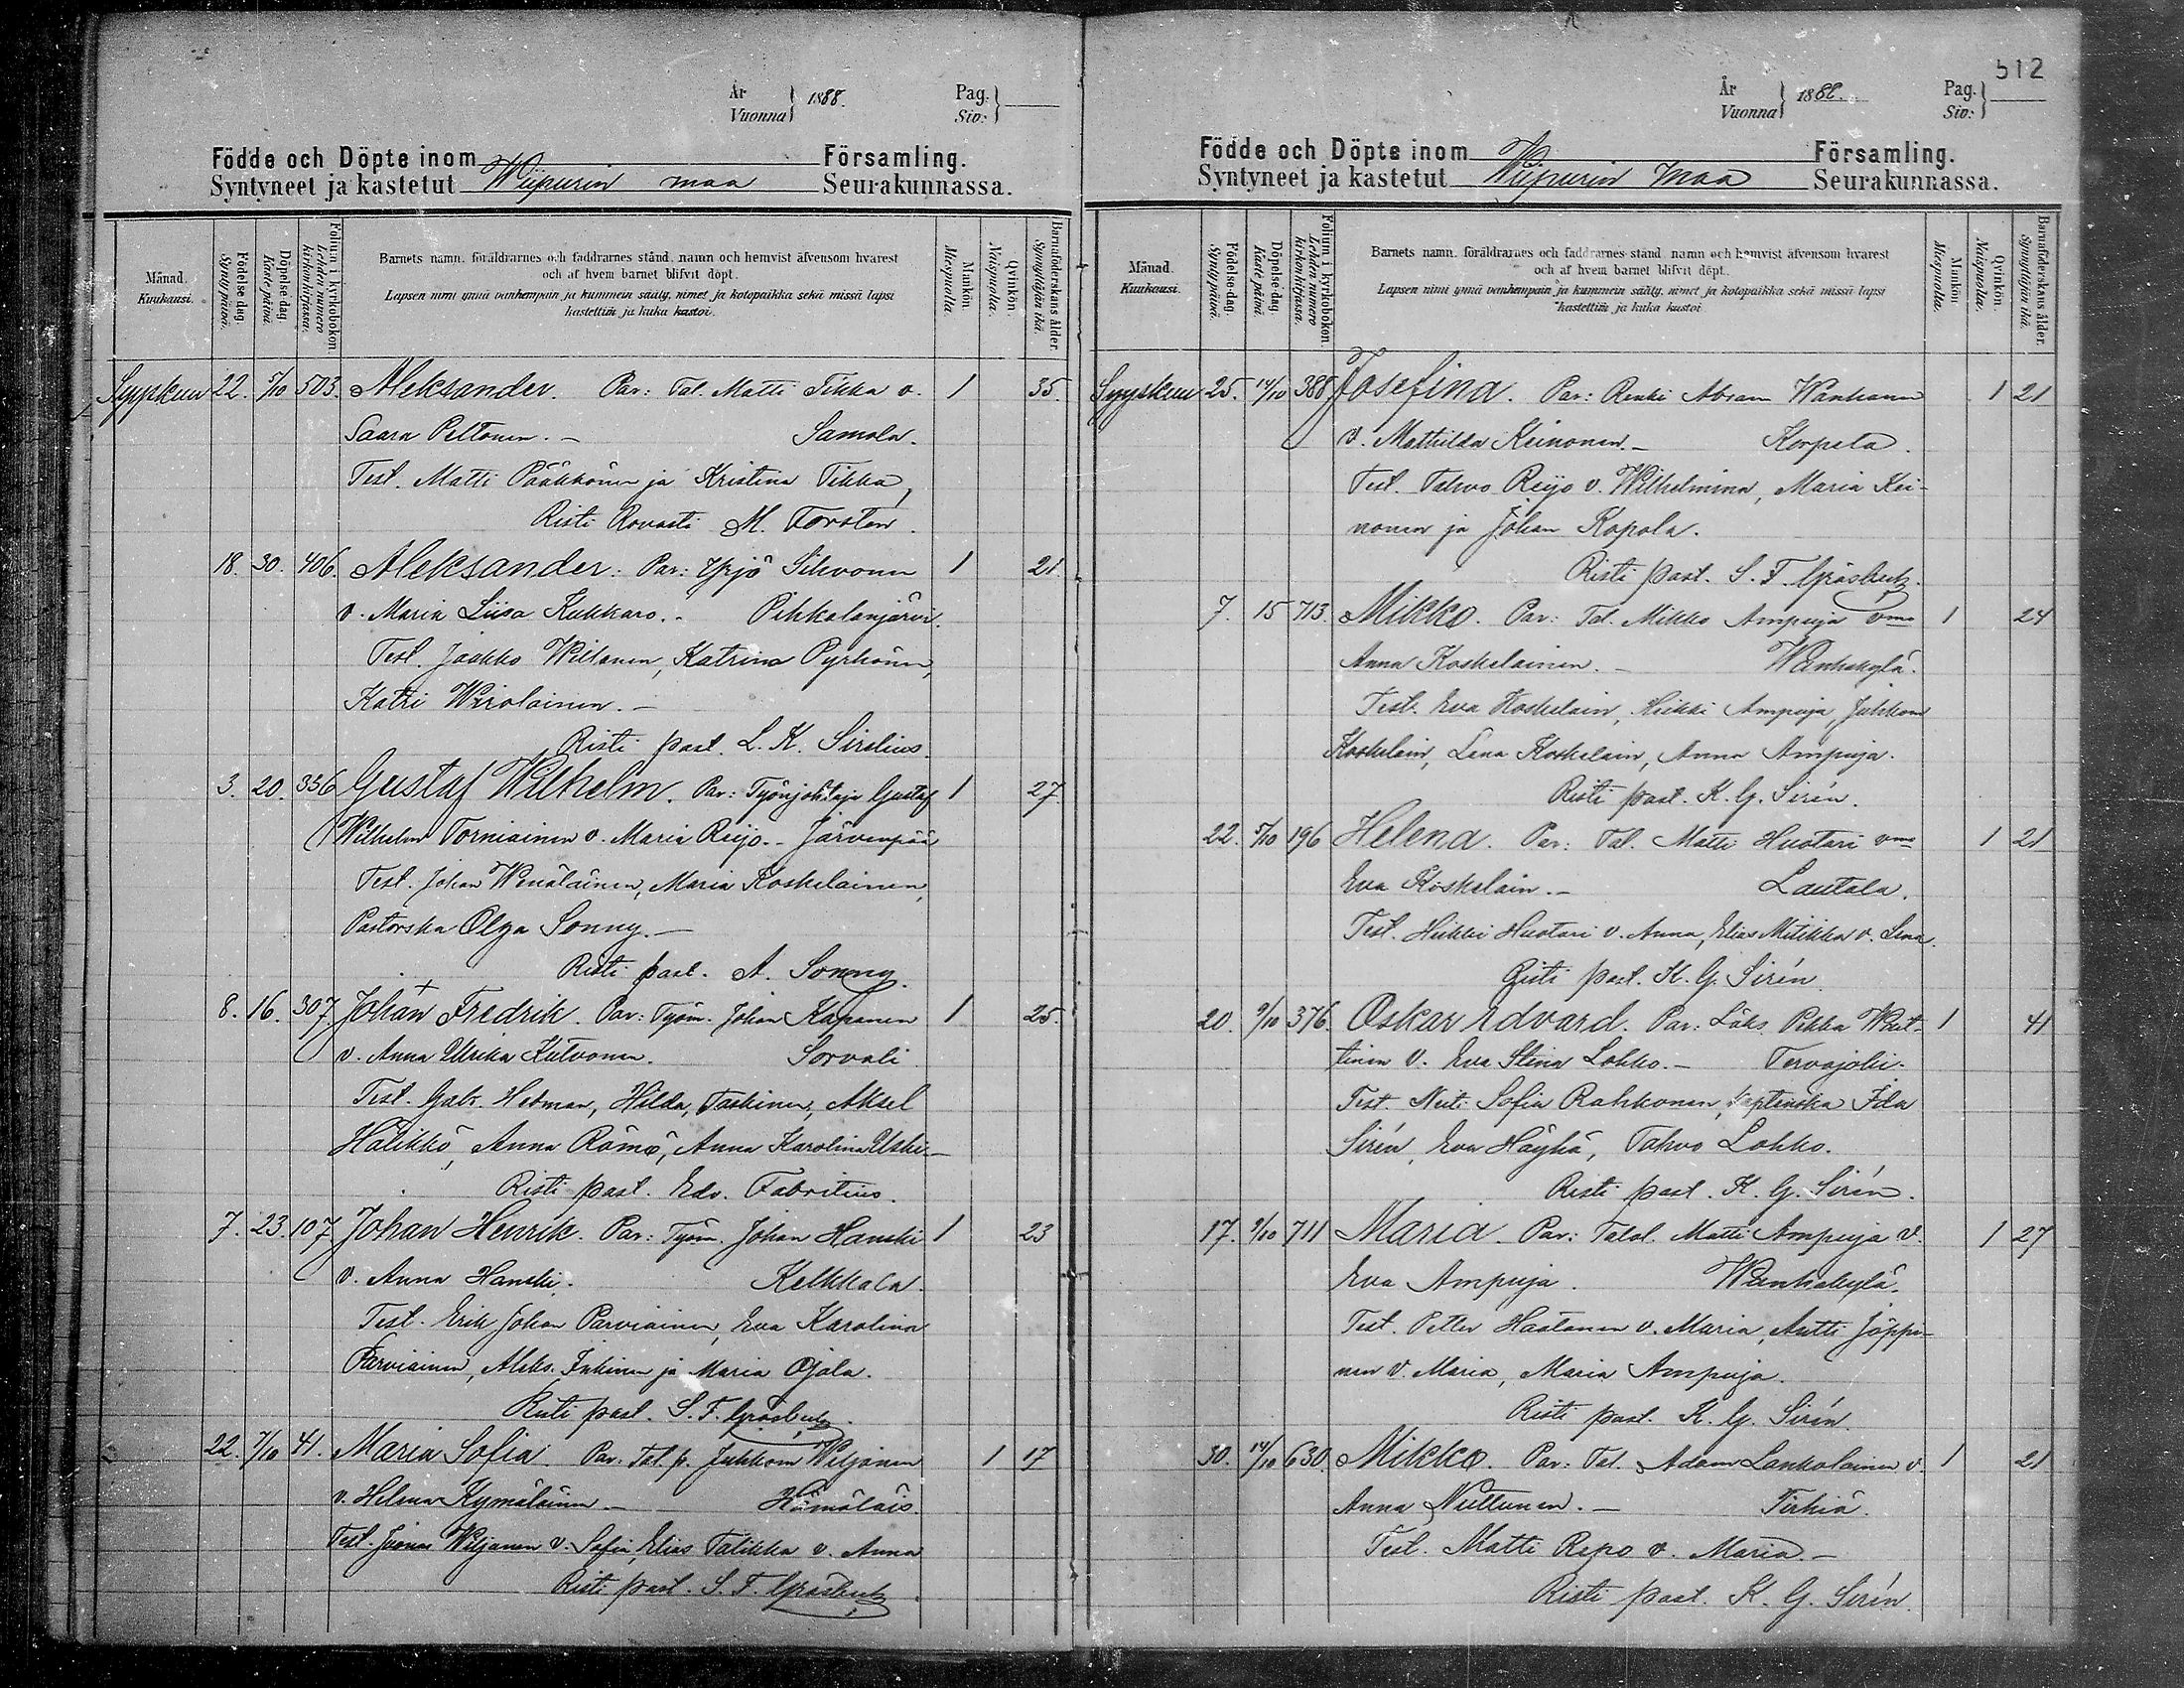 År
Vuonna } 1888.
Pag.
Siv: }
Födde och Döpte inom Församling.
Syntyneet ja kastetut Wiipurin maa Seurakunnassa.
Månad.
Kuukausi.
Födelse-dag.
Syntypäivä.
Döpelse-dag.
Kaste-päivä.
Folium i kyrkoboken
Lehden numero kirkonkirjassa.
Barnets namn, föräldrarnes och faddrarnes stånd, namn och hemvist äfvensom hvarest
och af hvem barnet blifvit döpt.
Lapsen nimi ynnä vanhempain ja kummein sääty, nimet ja kotopaikka sekä missä lapsi
kastettiin ja kuka kastoi.
Mankön.
Miespuolta.
Qvinkön.
Naispuolta.
Barnaföderskans ålder.
Synnyttäjän ikä.
Syyskuu 22. 5/10 503. Aleksander. Par: Tal. Matti Tikka v. 1 35.
Saara Peltonen. - Samola.
Test. Matti Pääkkönen ja Kristina Tikka,
Risti Rovasti M. Forsten.
18. 30. 406. Aleksander. Par: Yrjö Sihvonen 1 21.
v. Maria Liisa Kukkaro. - Pihkalanjärvi.
Test. Jaakko Willanen, Katrina Pyrhönen,
Katri Wirolainen. -
Risti past. L. K. Sirelius.
3. 20. 356 Gustaf Wilhelm. Par: Työnjohtaja Gustaf 1 27
Wilhelm Torniainen v. Maria Reijo. - Järvenpää
Test. Johan Wenäläinen, Maria Koskelainen,
Pastorska Olga Sonny. -
Risti past. A. Sonny.
8. 16. 307 Johan Fredrik. Par: Työm. Johan Kapanen 1 25.
v. Anna Ulrika Kutvonen. Sorvali
Test. Gabr. Hedman, Hilda Taskinen, Aksel
Halikko, Anna Römö, Anna Karolina Uski -
Risti past. Edv. Fabritius.
7. 23. 107 Johan Henrik. Par: Työm. Johan Hanski 1 23
v. Anna Hanski. Kelkkala.
Test. Erik Johan Parviainen, Eva Karolina
Parviainen, Aleks. Inkinen ja Maria Ojala.
Risti past. S. F. Gräsbeck.
22. 7/10 41. Maria Sofia. Par: Tal. p. Juhkom Wiljanen 1 17
v. Helena Kymäläinen - Hämäläis.
Test. Joonas Wiljanen v. Sofia, Elias Talikka v. Anna
Risti past. S. F. Gräsbeck.
512
År
Vuonna } 1888.
Pag.
Siv: }
Födde och Döpte inom Församling.
Syntyneet ja kastetut Wiipurin maa Seurakunnassa.
Månad.
Kuukausi.
Födelse-dag.
Syntypäivä.
Döpelse-dag.
Kaste-päivä.
Folium i kyrkoboken
Lehden numero kirkonkirjassa.
Barnets namn, föräldrarnes och faddrarnes stånd, namn och hemvist äfvensom hvarest
och af hvem barnet blifvit döpt.
Lapsen nimi ynnä vanhempain ja kummein sääty, nimet ja kotopaikka sekä missä lapsi
kastettiin ja kuka kastoi
Mankön.
Miespuolta.
Qvinkön.
Naispuolta.
Barnaföderskans ålder.
Synnyttäjän ikä.
Syyskuu 25. 14/10 388 Josefina. Par: Renki Abram Wanhanen 1 21
v. Mathilda Keinonen. - Korpela.
Test. Tahvo Reijo v. Wilhelmina, Maria Kei-
nonen ja Johan Kopola.
Risti past. S. F. Gräsbeck.
7. 15 713. Mikko. Par: Tal. Mikko Ampuja vmo 1 24
Anna Koskelainen. - Wanhakylä.
Test. Eva Koskelain, Heikki Ampuja, Juhkom
Koskelain, Lena Koskelain, Anna Ampuja.
Risti past. K. G. Sirén.
22. 5/10 196 Helena. Par: Tal. Matti Huotari vmo 1 21
Eva Koskelain. - Lautala.
Test. Heikki Huotari v. Anna, Elias Mitikka v. Lena.
Risti past. K. G. Sirén
20. 9/10 376. Oskar Edvard. Par: Läks. Pekka Wort- 1 41
tinen v. Eva Stina Lokko. - Tervajoki.
Test. Neiti Sofia Rahkonen, Kaptenska Ida
Sirén, Eva Häyhä, Tahvo Lokko.
Risti past. K. G. Sirén.
17. 9/10 711 Maria. Par: Talol. Matti Ampuja v. 1 27
Eva Ampuja. Wanhakylä.
Test. Petter Haatanen v. Maria, Antti Jäppi-
nen v. Maria, Maria Ampuja.
Risti past. K. G. Sirén.
30. 14/10 630. Mikko. Par: Tal. Adam Lankolainen v. 1 21
Anna Nuttunen. - Tirhiä.
Test. Matti Repo v. Maria. -
Risti past. K. G. Sirén.